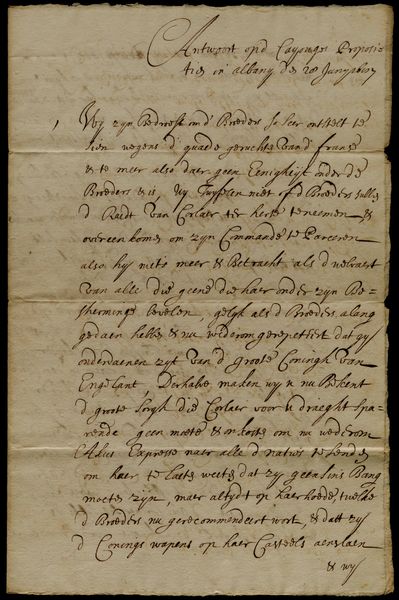 Antwoort op d' Cayouges Propositie
ties in albany den 28 Juny a° 1687
1 Wy zyn Bedroeft ond' Broeders so seer ontstelt te
sien wegens d' quaede geruchte van d' franse
& te meer also daer geen Eenigheyt onder de
Broeders & is, Wy Twyfelen niet of d Broeders sullen
d Raedt van Corlaer ter herte te nemen, &
overeenkomen om zyn Commande te Pareren
also hy niets meer & Betracht als d welvaert
van alle die geene die haer onder zyn Be-
schermingh bevelen, gelyk als d Broeders alang
gedaen hebbe & nu wederom gerepeteert dat gy
onderdaenen zyt van d' groote Coningh van
Engelant, Derhalve maken wy u nu Bekent
d groote sorgh die Corlaer voor u draeght spa-
rende geen moete & onkoste om nu wederom
Expresse naer alle d natios te senden
om haer te laete weeten dat zy geensins Bang
moeten zyn, maer altydt op haer hoede, twelke
d Broeders nu gerecommendeert wort, & datt zy
d Conings wapens op haer Casteels aenslaen
& wy